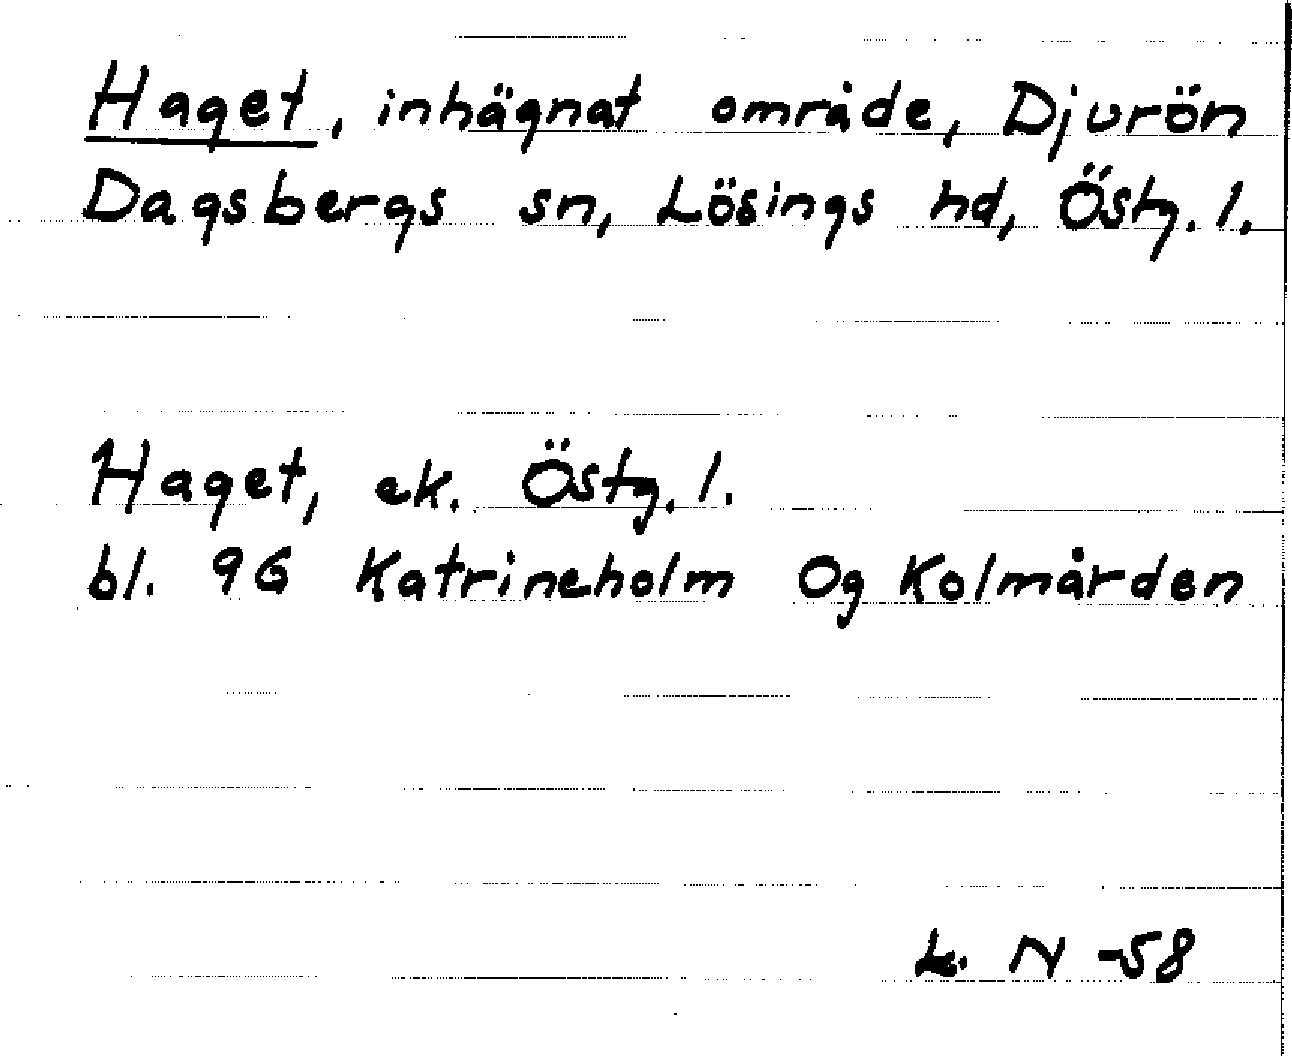 Haget, inhägnat område, Djurön
Dagsbergs sn, Lösings hd, Östg. l.
Haget, ek. Östg. l.
bl. 9G Katrineholm og Kolmården
L. N -58